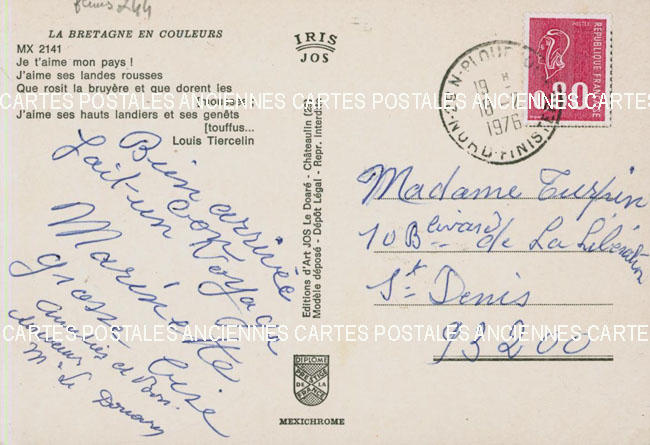 finis 244
LA BRETAGNE EN COULEURS
MX 2141
Je t'aime mon pays !
J'aime ses landes rousses
Que rosit la bruyère et que dorent les
[mousses ;
J'aime ses hauts landiers et ses genêts
[touffus...
Louis Tiercelin
IRIS
JOS
Editions d'Art JOS Le Doaré - Châteaulin (29)
Modèle déposé - Dépôt Légal - Repr. Interdite
DIPLOME
PRESTIGE
DE LA
FRANCE
MEXICHROME
Bien arrivée
fait un
bon voyage
Marinette
grosse bise
amitiés et Bon
Mr Le Douary
REPUBLIQUE FRANÇAISE
POSTES
0.80
19 H
1976
NORD-FINISTERE
Madame Turpin
10 Blevard de La Libération
St Denis
93200
CARTES POSTALES ANCIENNES-CARTES POSTALES ANCIENNES-CARTES POSTALES ANCIENNES-CARTE
CARTES POSTALES ANCIENNES CARTES POSTALES ANCIENNES-CARTES POSTALES ANCIENNES-CARTE